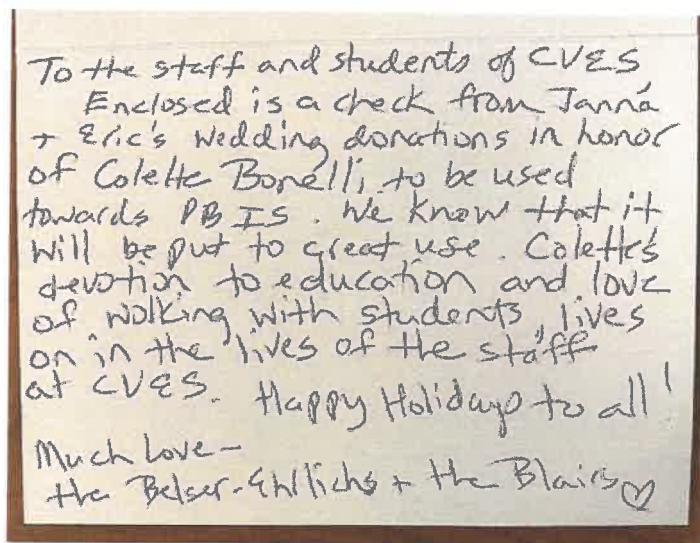 To the staff and students of CVES
Enclosed is a check from Janná
+ Eric's wedding donations in honor
of Colette Bonelli, to be used
towards PBIS. We know that it
will be put to great use. Colette's
devotion to education and love
of working with students, lives
on in the lives of the staff
at CVES. Happy Holidays to all!
Much Love-
the Belser-Ehrlichs + the Blairs ♡